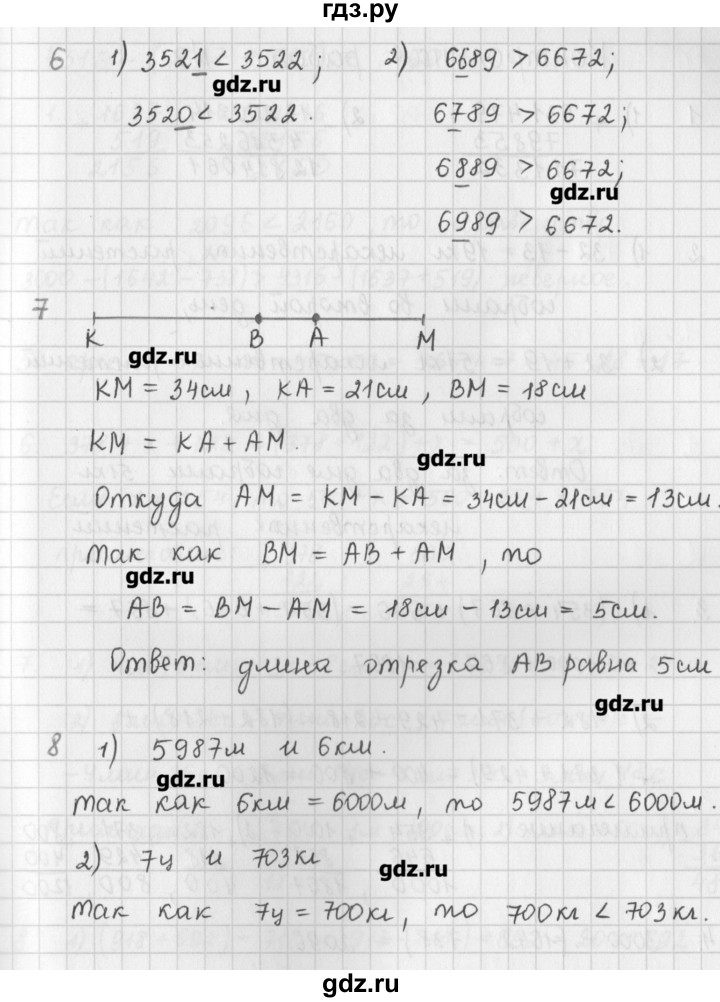 гдз.ру
6 1) 3521 < 3522; 2) 6689 > 6672;
gdz.ru
3520 < 3522. 6789 > 6672;
6889 > 6672;
gdz.ru
6989 > 6672.
7
K B A M
gdz.ru
KM = 34см, KA = 21см, BM = 18см
KM = KA + AM.
gdz.ru
Откуда AM = KM - KA = 34см - 21см = 13см.
Так как BM = AB + AM, то
gdz.ru
AB = BM - AM = 18см - 13см = 5см.
Ответ: длина отрезка AB равна 5см
gdz.ru
8 1) 5987м и 6км.
gdz.ru
Так как 6км = 6000м, то 5987м < 6000м.
2) 7ц и 703кг
gdz.ru
Так как 7ц = 700кг, то 700кг < 703кг.
gdz.ru